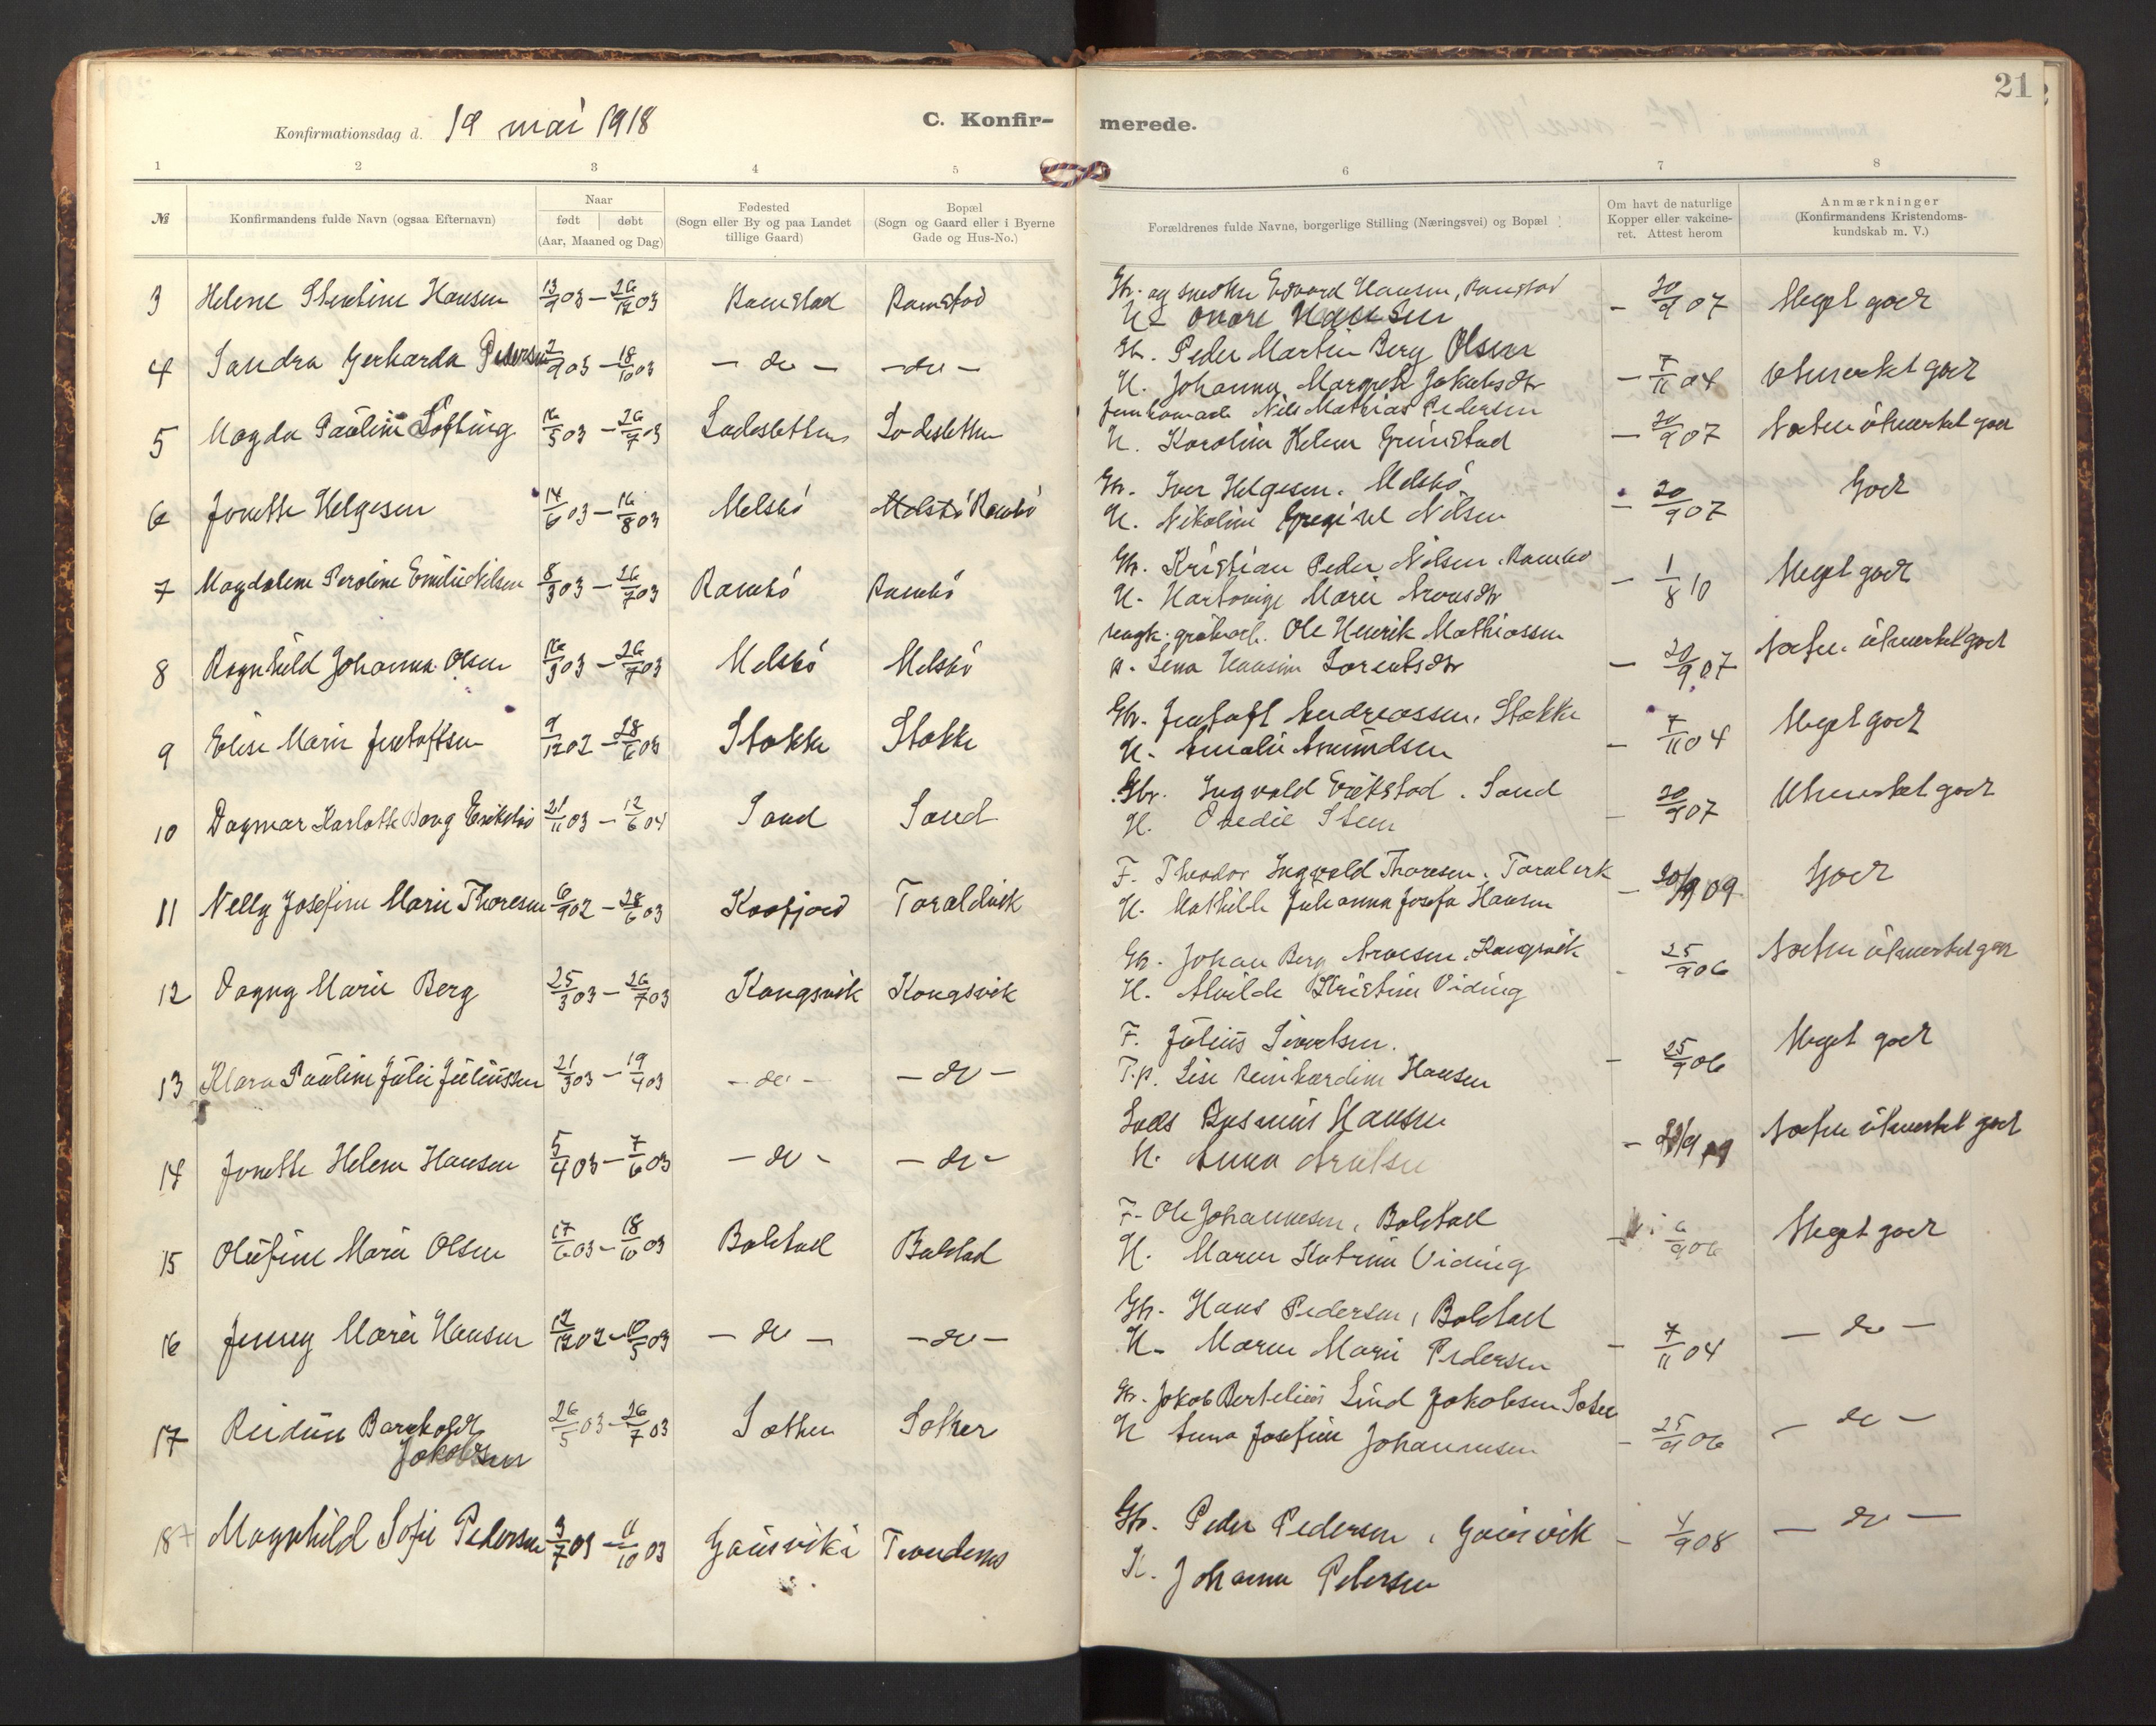 21
Konfirmationsdag d. 19 mai 1918
C. Konfirmerede.
1 2 3 4 5 6 7 8
№ Konfirmandens fulde Navn (ogsaa Efternavn)
Naar født døbt (Aar, Maaned og Dag)
Fødested (Sogn eller By og paa Landet tillige Gaard)
Bopæl (Sogn og Gaard eller i Byerne Gade og Hus-No.)
Forældrenes fulde Navne, borgerlige Stilling (Næringsvei) og Bopæl
Om havt de naturlige Kopper eller vakcineret. Attest herom
Anmærkninger (Konfirmandens Kristendomskundskab m. V.)
3 Helene Hansen 13/9 03 – 26/12 03 Ramstad Ramstad
Gbr. og Edvard Hansen, Ramstad – 20/9 07 Meget godt
H. Hansen
4 Sandra Gerharda Pedersen 2/9 03 – 18/10 03 – do – – do –
Gb. Peder Martin Berg Olsen – 7/11 04 Utmerket godt
H. Johanna Margrete Jakobsdtr
5 Magda Pauline 16/5 03 – 26/7 03 Ladesletten Ladesletten
Nils Mathias Pedersen – 20/9 07 Næsten utmerket godt
H. Karoline Helene Grünstad
6 Jonette Helgesen 14/6 03 – 16/8 03 Melsbö Melsbö Rambö
Gbr. Iver Helgesen. Melsbö – 20/9 07 Godt
H. Nikoline Nilsen
7 Magdalene Peroline Emilie Nilsen 8/3 03 – 26/7 03 Rambö Rambö
Gbr. Kristian Peder Nilsen. Rambö – 1/8 10 Meget godt
H. Hartvige Marie
8 Ragnhild Johanna Olsen 16/3 03 – 26/7 03 Melsbö Melsbö
Ole Henrik Mathiassen – 20/9 07 Næsten utmerket godt
p. Lena Hansine Lorentsdtr
9 Elise Marie Gustafsen 9/12 02 – 28/6 03 Stokke Stokke
Gbr. Gustaf Andreassen. Stokke – 7/11 04 Meget godt
H. Amalie Amundsen
10 Dagmar Karlotte Borg Erikstad 21/11 03 – 12/6 04 Sand Sand
Gbr. Ingvald Erikstad. Sand – 20/9 07 Utmerket godt
H. Ovedie Steen
11 Nelly Josefine Marie Thoresen 6/9 02 – 28/6 03 Kaafjord Taraldvik
F. Theodor Ingvald Thoresen. – 20/9 09 Godt
H. Mathilde Johanna Josefa Hansen
12 Dagny Marie Berg 25/3 03 – 26/7 03 Kongsvik Kongsvik
Gb. Johan Berg Arnesen. Kongsvik – 25/9 06 Næsten utmerket godt
H. Alvilde Kristine Viding
13 Klara Pauline Julie Juliussen 21/3 03 – 19/4 03 – do – – do –
F. Julius Sivertsen. – 25/9 06 Meget godt
T.p. Lise Reinhardine Hansen
14 Jonette Helene Hansen 5/4 03 – 7/6 03 – do – – do –
Rasmus Hansen Næsten utmerket godt
H. Anna
15 Olufine Marie Olsen 17/6 03 – 18/10 03 Balstad Balstad
F. Ole Johannesen, Balstad 6/9 06 Meget godt
H. Maren Katrine Viding
16 Jenny Marie Hansen 12/12 02 – 10/5 03 – do – – do –
Gb. Hans Pedersen, Balstad – 7/11 04 – do –
H. Maren Marie Pedersen
17 Reidun Barghold Jakobsen 26/5 03 – 26/7 03 Sæther Sæther
Gb. Jakob Bertelius Lind Jakobsen – 25/9 06 – do –
H. Anna Josefine Johannesen
18 Magnhild Sofie Pedersen 3/7 03 – 11/10 03 Gausvik Trondenes
Gb. Peder Pedersen, Gausvik – 4/9 08 – do –
H. Johanna Petersen